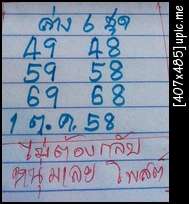 ล่าง 6 ชุด
49 48
59 58
69 68
1 ต.ค. 58
ไม่ต้องกลับ
หนุ่มเลย โพสต์
[407x485] upic.me